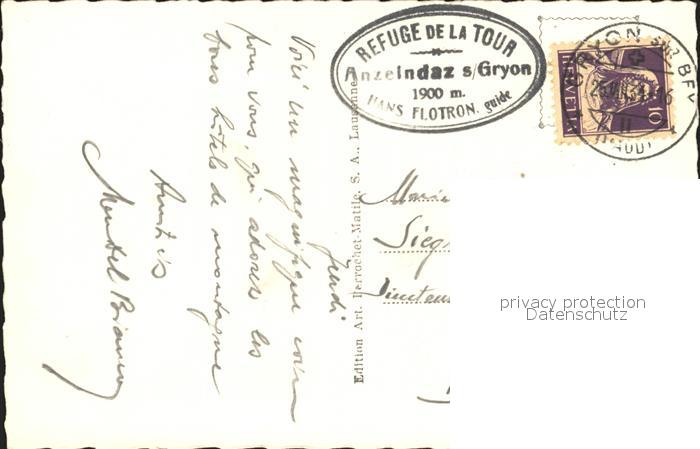 REFUGE DE LA TOUR
Anzeindaz s/Gryon
1900 m.
HANS FLOTRON. guide
GRYON s/ BEX
(VAUD)
HELVETIA
10
Jeudi
Voici un magnifique coin
pour vous, qui adorez les
bons hôtels de montagne
Amitiés
Edition Art. Perrochet-Matile, S. A., Lausanne
privacy protection
Datenschutz